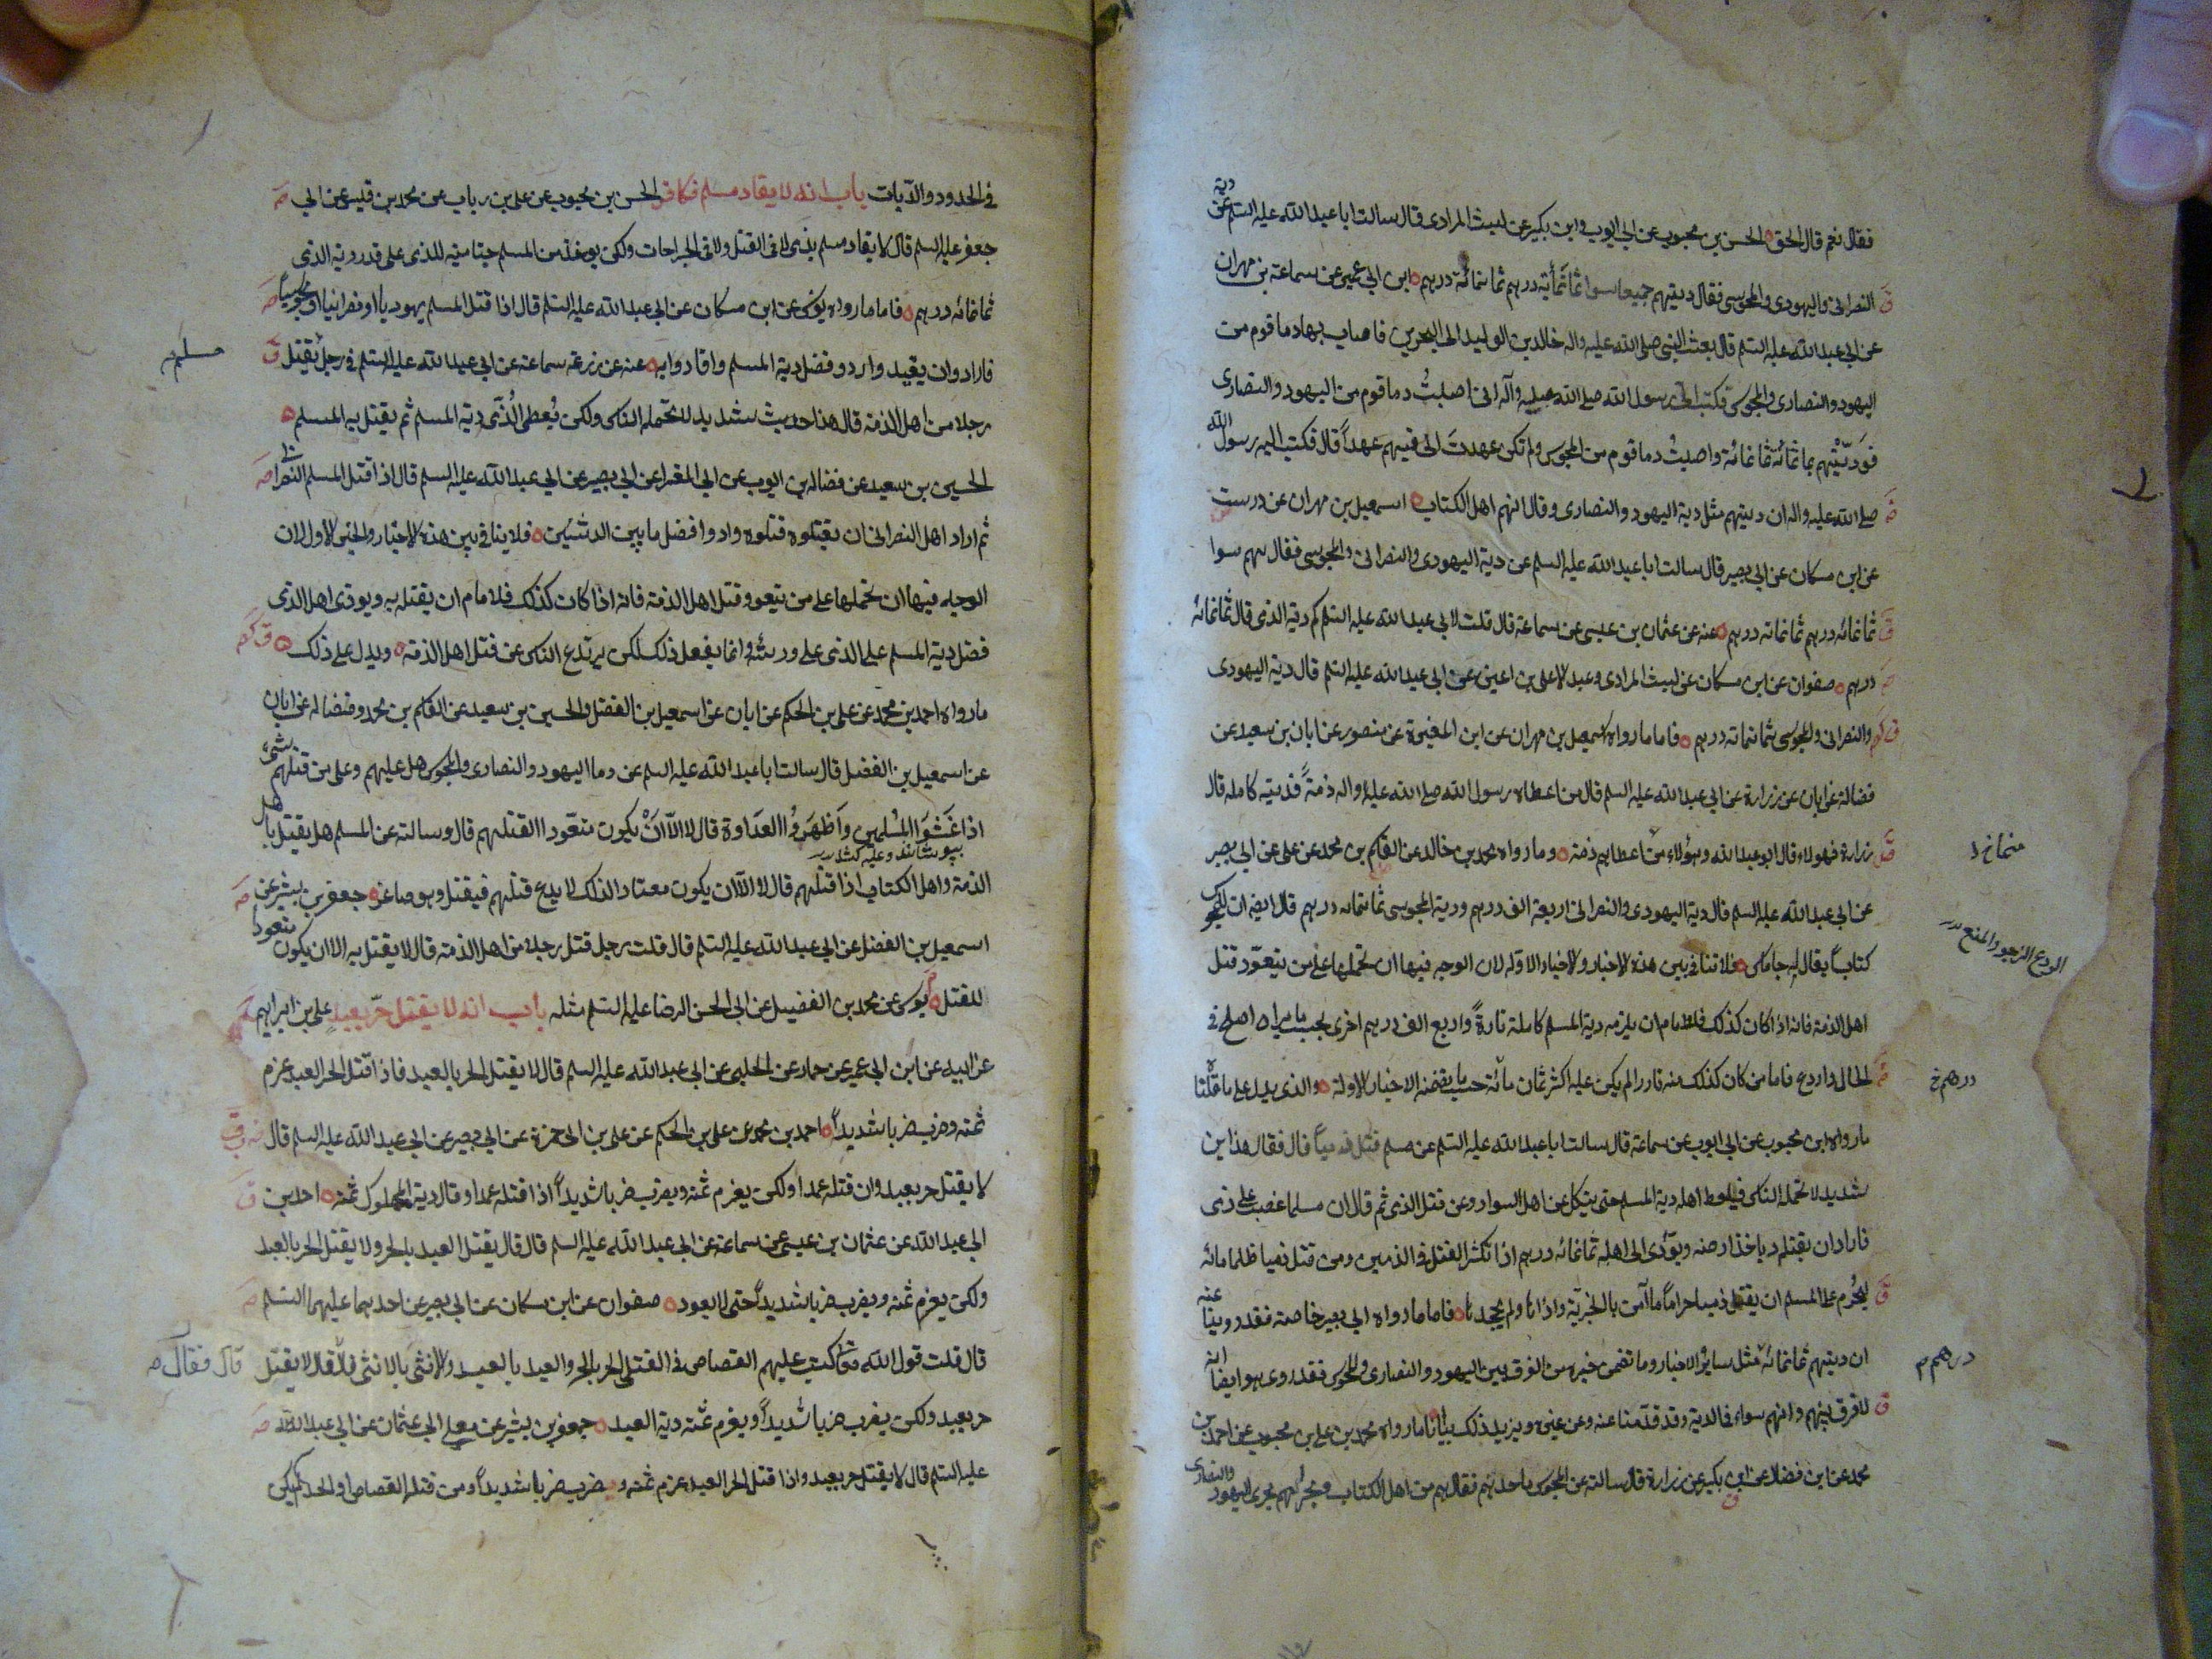 فقال نعم قال الحق الحسن بن محبوب عن ابي ايوب وابن بكير عن ليث المرادي قال سالت ابا عبد الله عليه السلم عن دية
النصراني واليهودي والمجوسي فقال ديتهم جميعا سوا ثمانمائة درهم ثمانمائة درهم ابن ابي عمير عن سماعة بن مهران
عن ابي عبد الله عليه السلم قال بعث النبي صلى الله عليه واله خالد بن الوليد الى البحرين فاصاب بها دما قوم من
اليهود والنصارى والمجوس فكتب الى رسول الله صلى الله عليه وآله اني اصبت دما قوم من اليهود والنصارى
فوديتهم ثمانمائة ثمانمائة واصبت دما قوم من المجوس ولم تكن عهدت الي فيهم عهداً قال فكتب اليه رسول الله
صلى الله عليه واله ان ديتهم مثل دية اليهود والنصارى وقال انهم اهل الكتاب اسمعيل بن مهران عن درست
عن ابن مسكان عن ابي بصير قال سالت ابا عبد الله عليه السلم عن دية اليهودي والنصراني والمجوسي فقال هم سوا
ثمانمائه درهم ثمانمائه درهم عنه عن عثمان بن عيسى عن سماعة قال قلت لابي عبد الله عليه السلم كم دية الذمي قال ثمانمائه
درهم صفوان عن ابن مسكان عن ليث المرادي وعبد الاعلى بن اعين عن ابي عبد الله عليه السلم قال دية اليهودي
والنصراني والمجوسي ثمانمائه درهم فاما ما رواه اسمعيل بن مهران عن ابن المغيرة عن منصور عن ابان بن سعيد عن
فضالة عن ابان عن زرارة عن ابي عبد الله عليه السلم قال من اعطاه رسول الله صلى الله عليه واله ذمةً فديته كامله قال
زرارة فهولاء قال ابو عبد الله وهؤلاء من اعطاهم ذمة وما رواه محمد بن خالد عن القسم بن محمد عن علي عن ابي بصير
عن ابي عبد الله عليه السلم قال دية اليهودي والنصراني اربعة الف درهم ودية المجوسي ثمانمائه درهم قال ايضا ان للمجوس
كتاباً يقال له جاماس فلا تنافي بين هذه الاخبار والاخبار الاوله لان الوجه فيها ان نحملها على من يتعوّد قتل
اهل الذمة فانه اذا كان كذلك فللامام ان يلزمه دية المسلم كاملة تارةً واربع الف درهم اخرى بحسب ما يراه اصلح في
الحال واردع فاما من كان كذلك منه نادرا لم يكن عليه اكثر ثمان مائة حسب ما يقضه الاخبار الاولة والذي يدل على ما قلنا
ما رواه ابن محبوب عن ابي ايوب عن سماعة قال سالت ابا عبد الله عليه السلم عن مسلم قتل ذمياً قال فقال هذا بن
شديد لا تحمله الناس فليعط اهله دية المسلم حتى ينكل عن اهل السواد وعن قتل الذمي ثم قال ان مسلما غضب على ذمي
فاراد ان يقتله وياخذ ارضه ويؤدي الى اهله ثمانمائه درهم اذا تكثر القتل في الذميين ومن قتل ذميا ظلما مائه
ليحرم على المسلم ان يقتل ذميا حراماً ما آمن بالجزية واداها ولم يجحدها فاما ما رواه ابي بصير خاصة فقد روينا عنه
ان ديتهم ثمانمائه مثل ساير الاخبار وما تضمن خبره من الفرق بين اليهود والنصارى والمجوس فقد روى هو ايضا انه
لا فرق بينهم وانهم سواء في الدية وقد قدمنا عنه وعن غيره ويزيد ذلك بيانا ما رواه محمد بن علي بن محبوب عن احمد بن
محمد عن ابن فضال عن ابن بكير عن زرارة قال سالته عن المجوس ما حدهم فقال هم من اهل الكتاب ومجراهم مجرى اليهود والنصارى
منهما خ د
الردع الزجر والمنع
درهم خ
درهم م
في الحدود والديات باب انه لا يقاد مسلم بكافر الحسن بن محبوب عن علي بن رباب عن محمد بن قيس عن ابي
جعفر عليه السلم قال لا يقاد مسلم بذمي لا في القتل ولا في الجراحات ولكن يوخذ من المسلم جنايته للذمي على قدر دية الذمي
ثمانمائه درهم فاما ما رواه يونس عن ابن مسكان عن ابي عبد الله عليه السلم قال اذا قتل المسلم يهوديا او نصرانيا او مجوسياً
فارادوا ان يقيدوا ردوا فضل دية المسلم واقادوا به عنه عن زرعة سماعة عن ابي عبد الله عليه السلم في رجل يقتل
رجلا من اهل الذمة قال هذا حديث شديد لا تحمله الناس ولكن يُعطي الذمي دية المسلم ثم يقتل به المسلم
الحسين بن سعيد عن فضاله بن ايوب عن ابي المغرا عن ابي بصير عن ابي عبد الله عليه السلم قال اذا قتل المسلم النصراني
ثم اراد اهل النصراني ان يقتلوه قتلوه وادوا فضل ما بين الديتين فلا ينافي بين هذه الاخبار والخبر الاول لان
الوجه فيها ان نحملها على من يتعود قتل اهل الذمة فانه اذا كان كذلك فللامام ان يقتله به ويودي اهل الذمي
فضل دية المسلم على الذمي على ورثته وانما يفعل ذلك لكي يرتدع الناس عن قتل اهل الذمة ويدل على ذلك
ما رواه احمد بن محمد عن علي بن الحكم عن ابان عن اسمعيل بن الفضل والحسين بن سعيد عن القسم بن محمد وفضاله عن ابان
عن اسمعيل بن الفضل قال سالت ابا عبد الله عليه السلم عن دما اليهود والنصارى والمجوس هل عليهم وعلى من قتلهم شيء
اذا غَشَوا المسلمين وَاَظهَرُوا العداوة قال لا الّا اَنْ يكون متعوّدا لقتلهم قال وسالته عن المسلم هل يقتل باهل
بپوشانند و غلبه كنند
الذمة واهل الكتاب اذا قتلهم قال لا الا ان يكون معتادا لذلك لا يدع قتلهم فيقتل وهو صاغر جعفر بن بشير عن
اسمعيل بن الفضل عن ابي عبد الله عليه السلم قال قلت رجل قتل رجلا من اهل الذمة قال لا يقتل به الا ان يكون متعوداً
للقتل يونس عن محمد بن الفضيل عن ابي الحسن الرضا عليه السلم مثله باب انه لا يقتل حرّ بعبد علي بن ابراهيم
عن ابيه عن ابن ابي عمير عن حماد عن الحلبي عن ابي عبد الله عليه السلم قال لا يقتل الحر بالعبد فاذا قتل الحر العبد غرم
ثمنه وضرب ضربا شديداً احمد بن محمد عن علي بن الحكم عن علي بن ابي حمزة عن ابي بصير عن ابي عبد الله عليه السلم قال
لا يقتل حر بعبد وان قتله عمدا ولكن يغرم ثمنه ويضرب ضربا شديداً اذا قتله عمدا وقال دية المملوك ثمنه احمد بن
ابي عبد الله عن عثمان بن عيسى عن سماعة عن ابي عبد الله عليه السلم قال قال يقتل العبد بالحر ولا يقتل الحر بالعبد
ولكن يغرم ثمنه ويضرب ضربا شديداً حتى لا يعود صفوان عن ابن مسكان عن ابي بصير عن احدهما عليهما السلم
قال قلت قول الله تعالى كتب عليكم القصاص في القتلى الحر بالحر والعبد بالعبد والانثى بالانثى قال قال لا يقتل
حر بعبد ولكن يضرب ضربا شديداً ويغرم ثمنه دية العبد جعفر بن بشير عن معلى ابي عثمان عن ابي عبد الله
عليه السلم قال لا يقتل حر بعبد واذا قتل الحر العبد غرم ثمنه وضرب ضربا شديداً ومن قتله القصاص او الحد لم يكن
مسلم
قال فقال